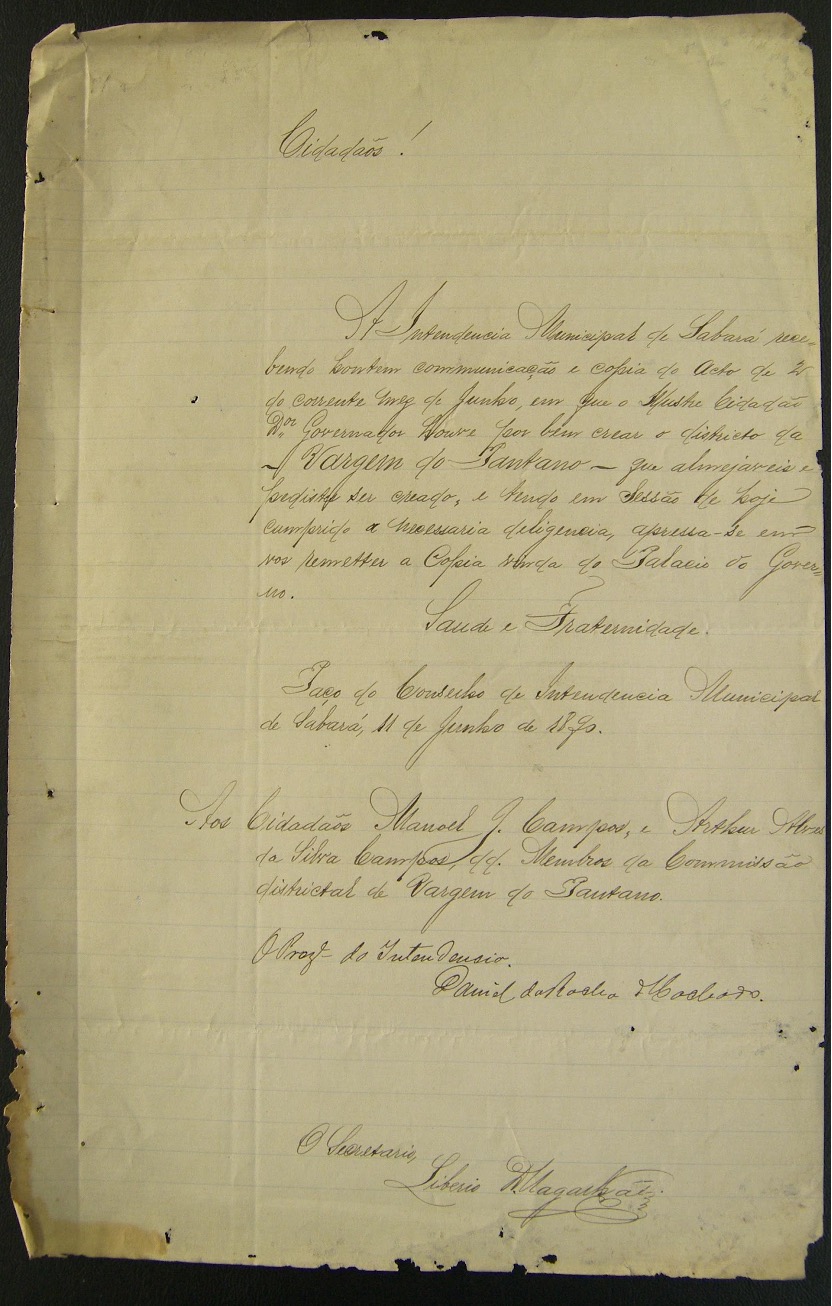 Cidadãos!
A Intendencia Municipal de Sabará rece-
bendo hontem communicação e copia do Acto de 2
do corrente mez de Junho, em que o Illustre Cidadão
Dor. Governador houve por bem crear o districto da
– Vargem do Pantano – que almejaveis e
pedistes ser creado, e tendo em Sessão de hoje
cumprido a necessaria diligencia, apressa-se em
vos remetter a Copia vinda do Palacio do Gover-
no.
Saude e Fraternidade.
Paço do Conselho de Intendencia Municipal
de Sabará, 11 de Junho de 1890.
Aos Cidadãos Manoel J. Campos, e Arthur Alves
da Silva Campos, dd. Membros da Commissão
districtal de Vargem do Pantano.
O Prezte da Intendencia.
Daniel da Rocha Machado.
O Secretario,
Liberio